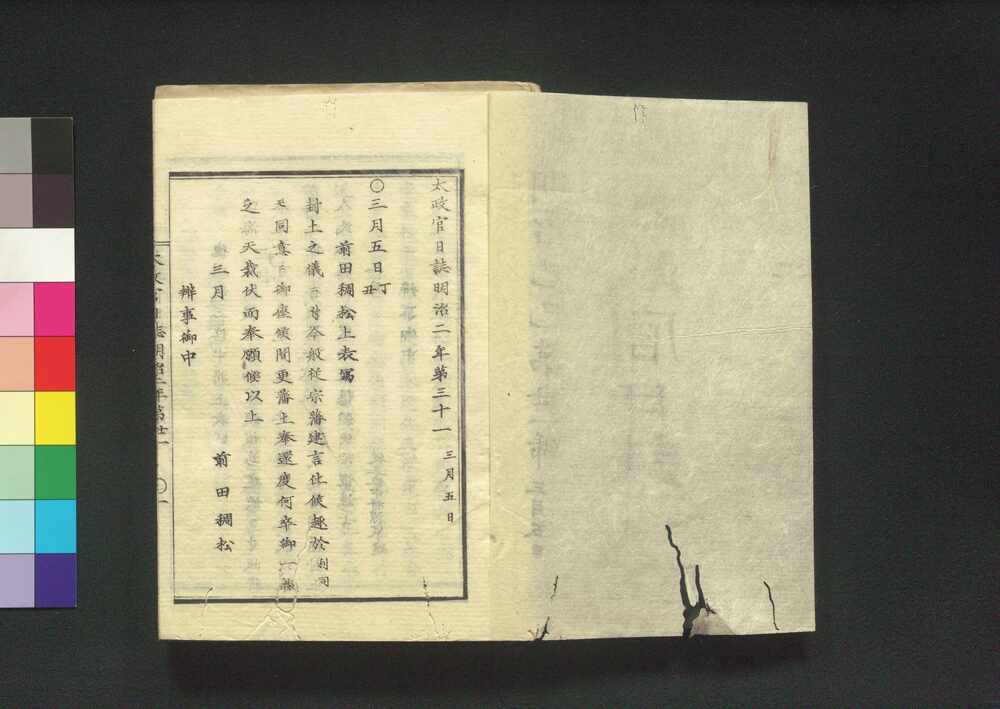 太政官日誌明治二年第三十一 三月五日
〇三月五日丁丑
前田稠松上表写
封土之儀ニ付今般従宗藩建言仕候趣於利同
モ同意ニ御座候間更藩土奉還度何卒御一般
之天裁伏而奉願候以上
三月 前田稠松
辨事御中
太政官日誌明治二年第卅一 〇一